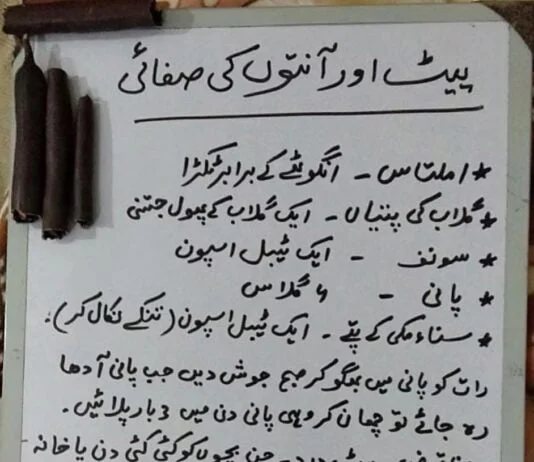 پیٹ اور آنتوں کی صفائی
* املتاس - انگوٹھے کے برابر ٹکڑا
* گلاب کی پتیاں - ایک گلاب کے پھول جتنی
* سونف - ایک ٹیبل اسپون
* پانی - ۲ گلاس
* سناء مکی کے پتے - ایک ٹیبل اسپون (تنکے نکال کر)۔
رات کو پانی میں بھگو کر صبح جوش دیں جب پانی آدھا
رہ جائے تو چھان کر وہی پانی دن میں 3 بار پلائیں۔
جن بچوں کو کئی کئی دن پاخانہ